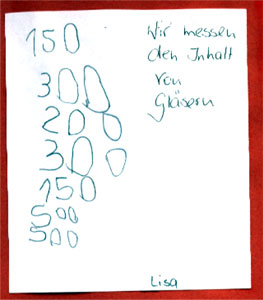 150
300
200
300
150
500
500
Wir messen
den Inhalt
von
Gläsern
Lisa